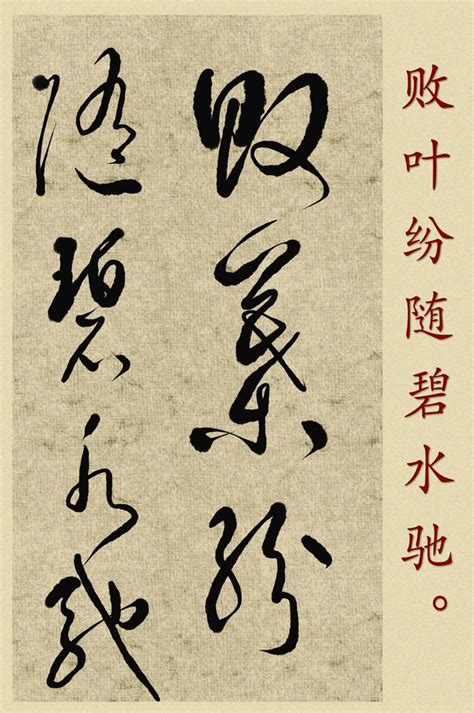 敗葉紛
隨碧水馳
败叶纷随碧水驰。